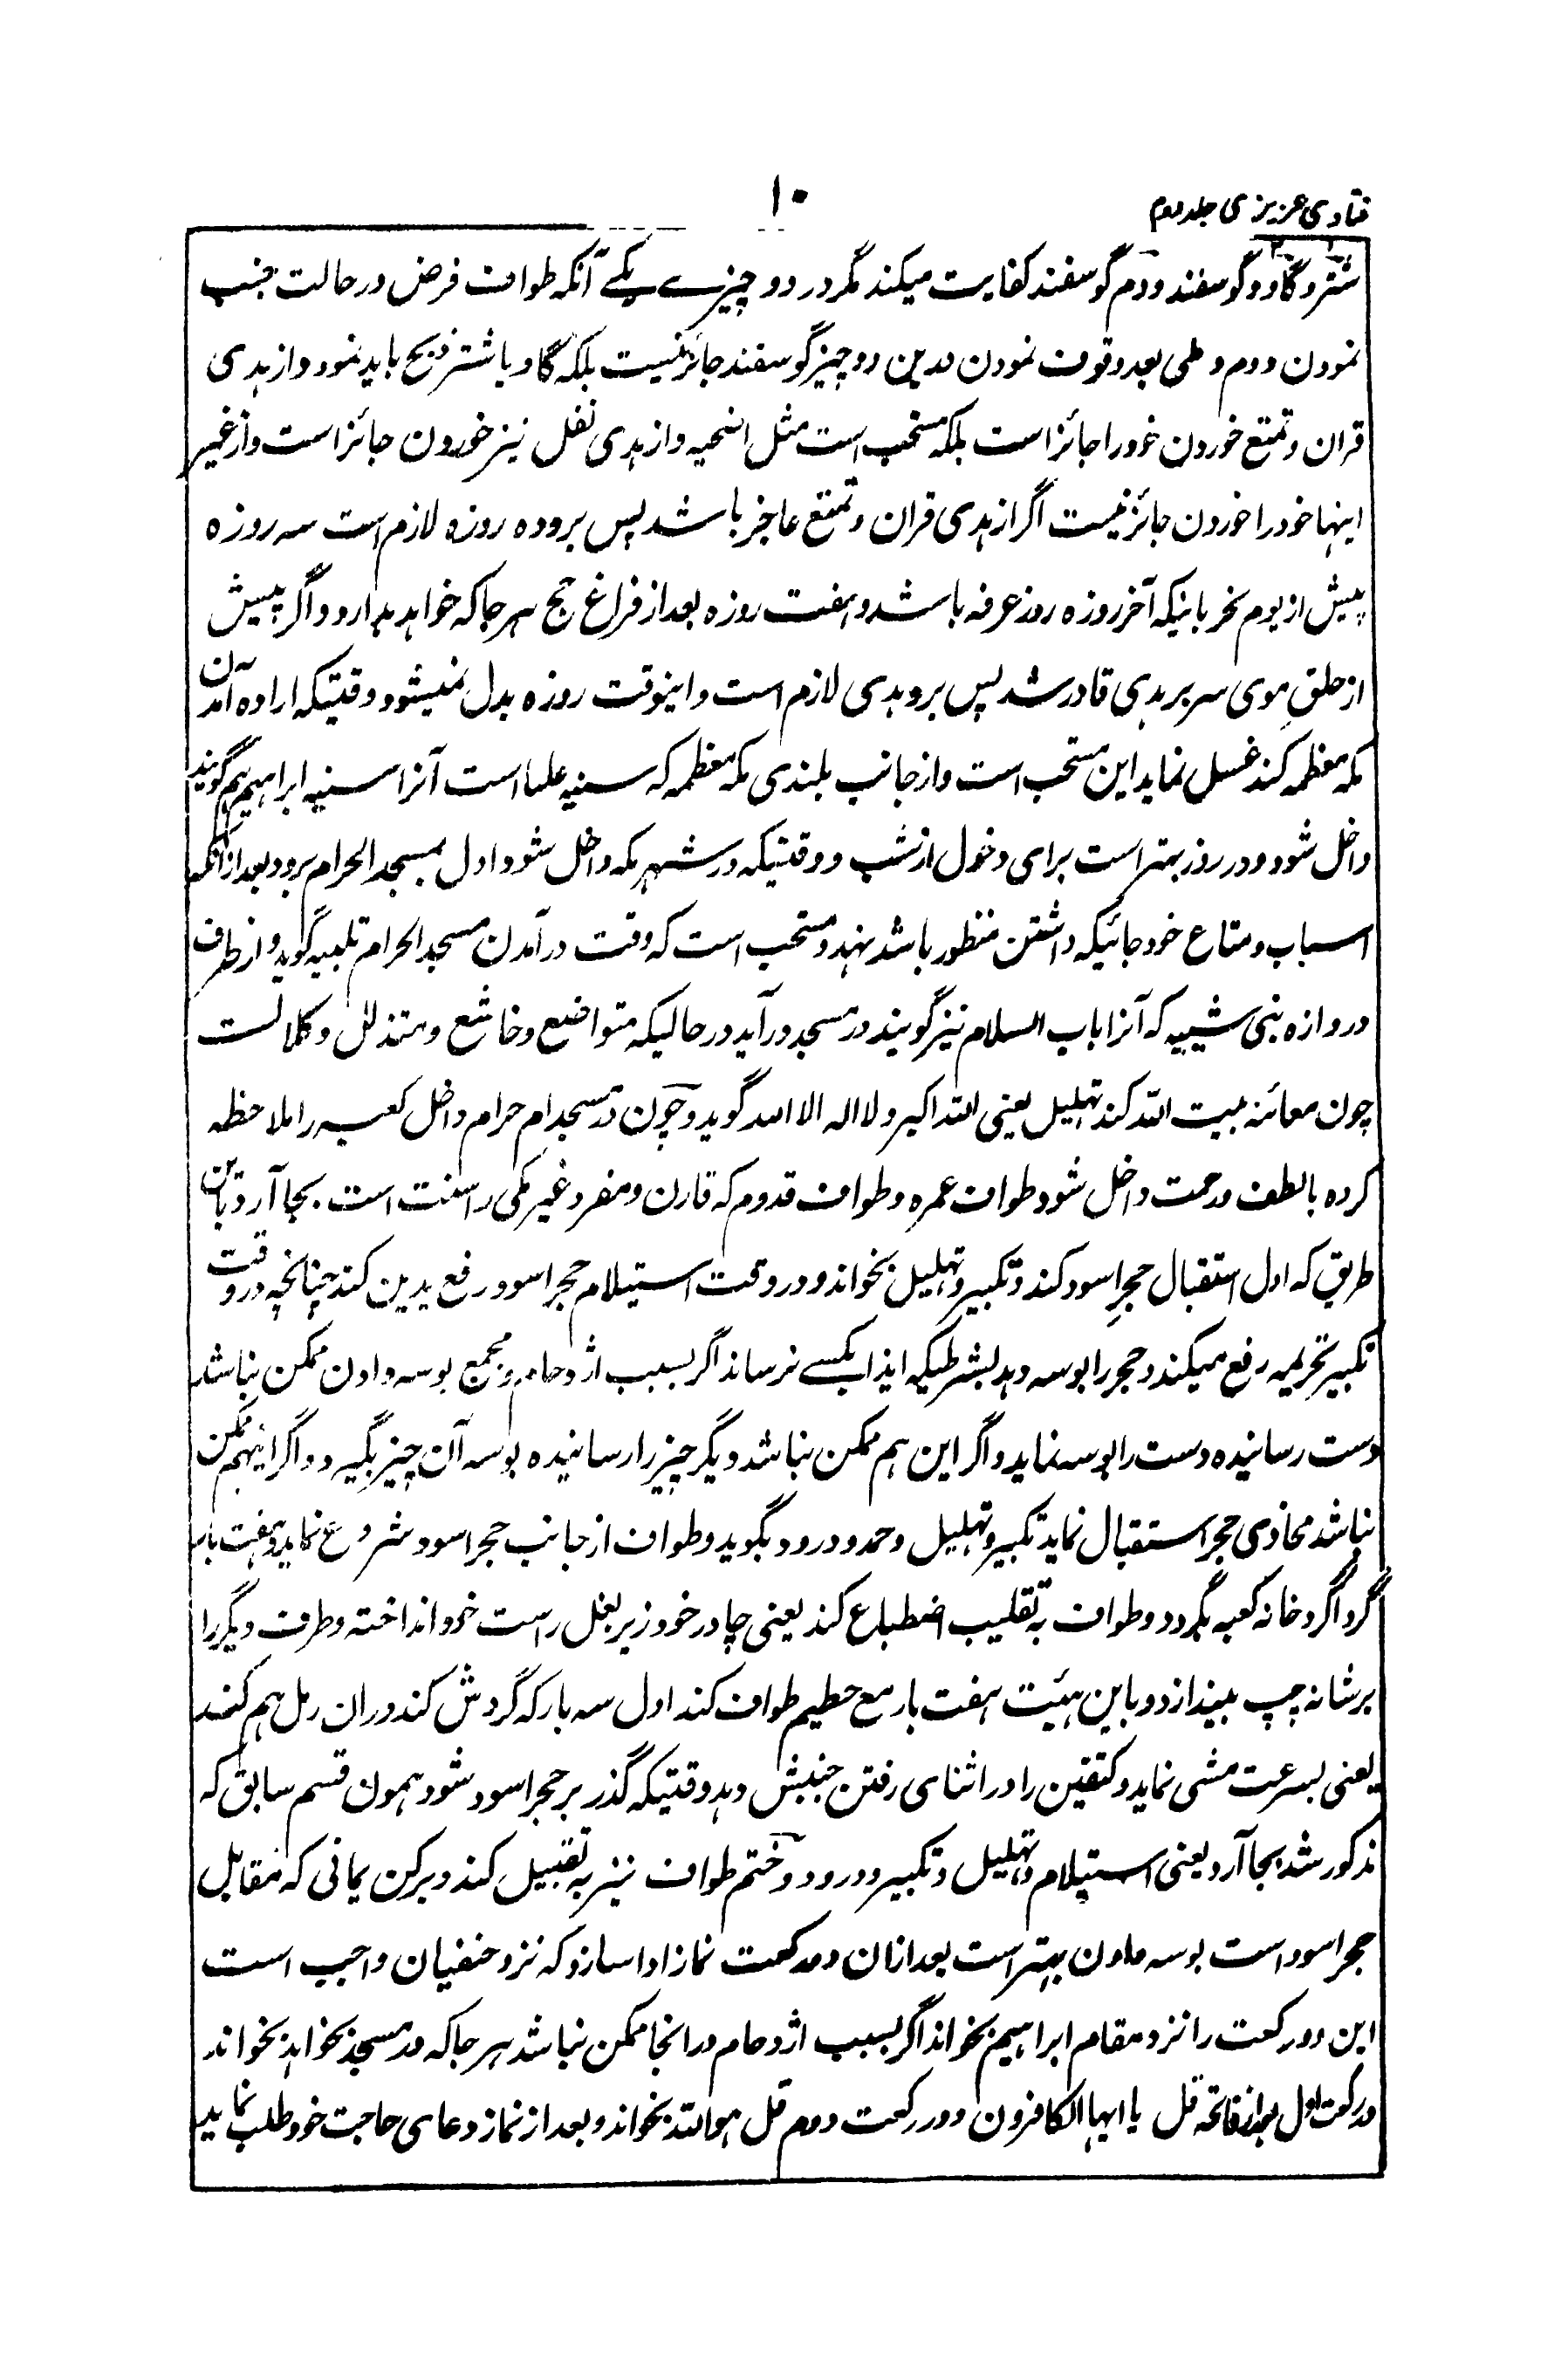 فتاوی عزیزی جلد دوم
۱۰
شتر و گاو و گوسفند و دم گوسفند کفایت میکند مگر در دو چیزے یکے آنکہ طواف فرض در حالت جنب
نمودن دوم وطی بعد وقوف نمودن درین دو چیز گوسفند جائز نیست بلکہ گاو یا شتر ذبح باید نمود و از ہدی
قران و تمتع خوردن خود را جائز است بلکہ مستحب است مثل اضحیہ و از ہدی نفل نیز خوردن جائز است و از غیر
اینہا خود را خوردن جائز نیست اگر از ہدی قران و تمتع عاجز باشد پس برو دہ روزہ لازم است سہ روزہ
پیش از یوم نحر باینکہ آخر روزہ روز عرفہ باشد و ہفت روزہ بعد از فراغ حج ہر جا کہ خواہد بدارد و اگر پیش
از حلق موی سر بر ہدی قادر شد پس برو ہدی لازم است و اینوقت روزہ بدل نمیشود وقتیکہ ارادہ آمدن
مکہ معظمہ کند غسل نماید این مستحب است و از جانب بلندی مکہ معظمہ کہ سنیہ علیا است آنرا سنیہ ابراہیم ہم گویند
داخل شود و در روز بہتر است برای دخول از شب و وقتیکہ در شہر مکہ داخل شود اول بمسجد الحرام برود بعد از آنکہ
اسباب و متاع خود جائیکہ داشتن منظور باشد بنہد و مستحب است کہ وقت در آمدن مسجد الحرام تلبیہ گوید و از طرف
دروازہ بنی شیبیہ کہ آنرا باب السلام نیز گویند در مسجد در آید در حالیکہ متواضع و خاشع و متذلل و کلالت
چون معائنہ بیت اللہ کند تہلیل یعنی اللہ اکبر و لا الہ الا اللہ گوید و چون در مسجد ام حرام داخل کعبہ را ملاحظہ
کردہ بالطف و رحمت داخل شود طواف عمرہ و طواف قدوم کہ قارن و مفرد غیر مکی را سنت است بجا آرد باین
طریق کہ اول استقبال حجرِ اسود کند و تکبیر و تہلیل بخواند و در وقت استیلام حجر اسود رفع یدین کند چنانچہ در وقت
تکبیر تحریمہ رفع میکند و حجر را بوسہ دہد بشرطیکہ ایذا بکسے نرساند اگر بسبب اژدحام و مجمع بوسہ دادن ممکن نباشد
دست رسانیدہ دست را بوسہ نماید و اگر این ہم ممکن نباشد دیگر چیز را رسانیدہ بوسہ آن چیز بگیرد و اگر اینہم ممکن
نباشد محاذی حجر استقبال نماید تکبیر و تہلیل و حمد و درود بگوید و طواف از جانب حجر اسود شروع نماید و ہفت بار
گرداگرد خانہ کعبہ بگردد و طواف بہ تقلیب اضطباع کند یعنی چادر خود زیر بغل راست خود انداختہ و طرف دیگر را
بر شانہ چپ بیندازد و باین ہئیت ہفت بار مع حطیم طواف کند اول سہ بار کہ گردش کند دران رمل ہم کند
یعنی بسرعت مشی نماید و کتفین را در اثنای رفتن جنبش دہد وقتیکہ گذر بر حجر اسود شود ہمون قسم سابق کہ
مذکور شد بجا آرد یعنی استیلام و تہلیل و تکبیر و درود و ختم طواف نیز بہ تقبیل کند و برکن یمانی کہ مقابل
حجر اسود است بوسہ دادن بہتر است بعد ازان دو رکعت نماز ادا سازد کہ نزد حنفیان واجب است
این دو رکعت را نزد مقام ابراہیم بخواند اگر بسبب اژدحام در انجا ممکن نباشد ہر جا کہ در مسجد بخواہد بخواند
در رکعت اول بعد از فاتحہ قل یا ایہا الکافرون و در رکعت دوم قل ہو اللہ بخواند و بعد از نماز دعای حاجت خود طلب نماید